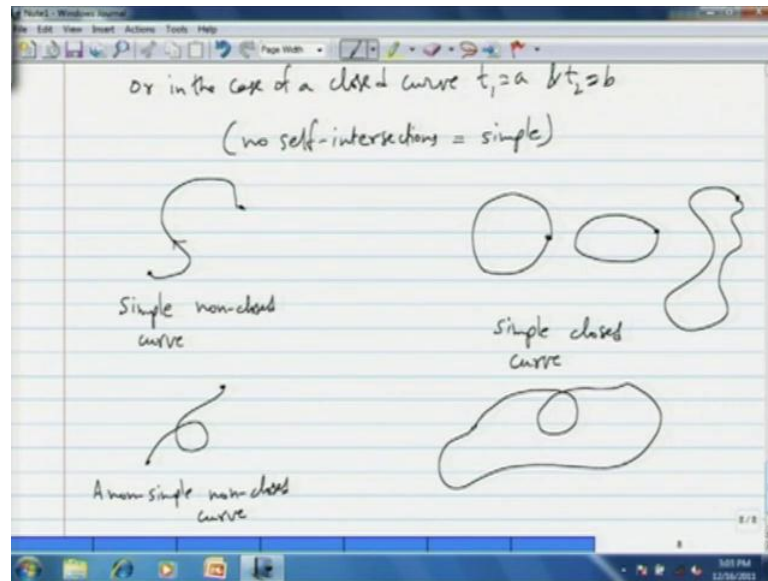 Note1 - Windows Journal
File Edit View Insert Actions Tools Help
Page Width
or in the case of a closed curve t₁=a & t₂=b
(no self-intersections = simple)
Simple non-closed
curve
Simple closed
curve
A non-simple non-closed
curve
8/8
8
3:03 PM
12/16/2011